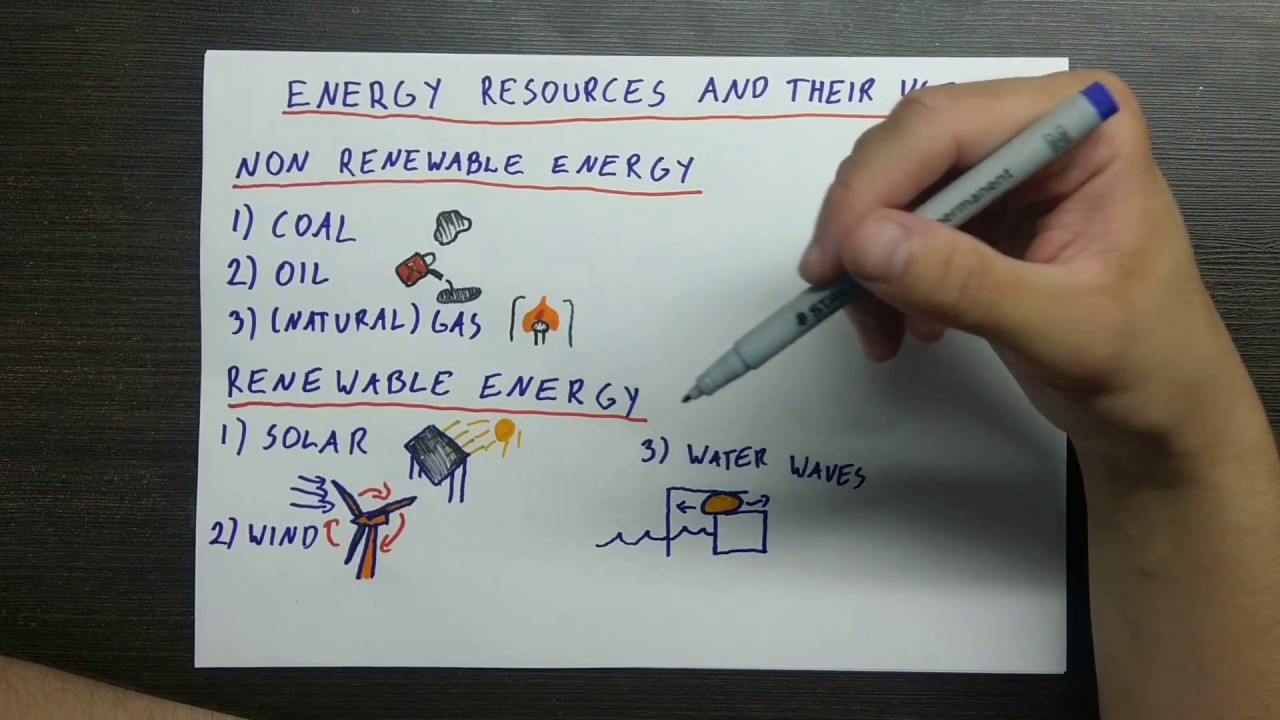 ENERGY RESOURCES AND THEIR
NON RENEWABLE ENERGY
1) COAL
2) OIL
3) (NATURAL) GAS
RENEWABLE ENERGY
1) SOLAR
2) WIND
3) WATER WAVES
permanent